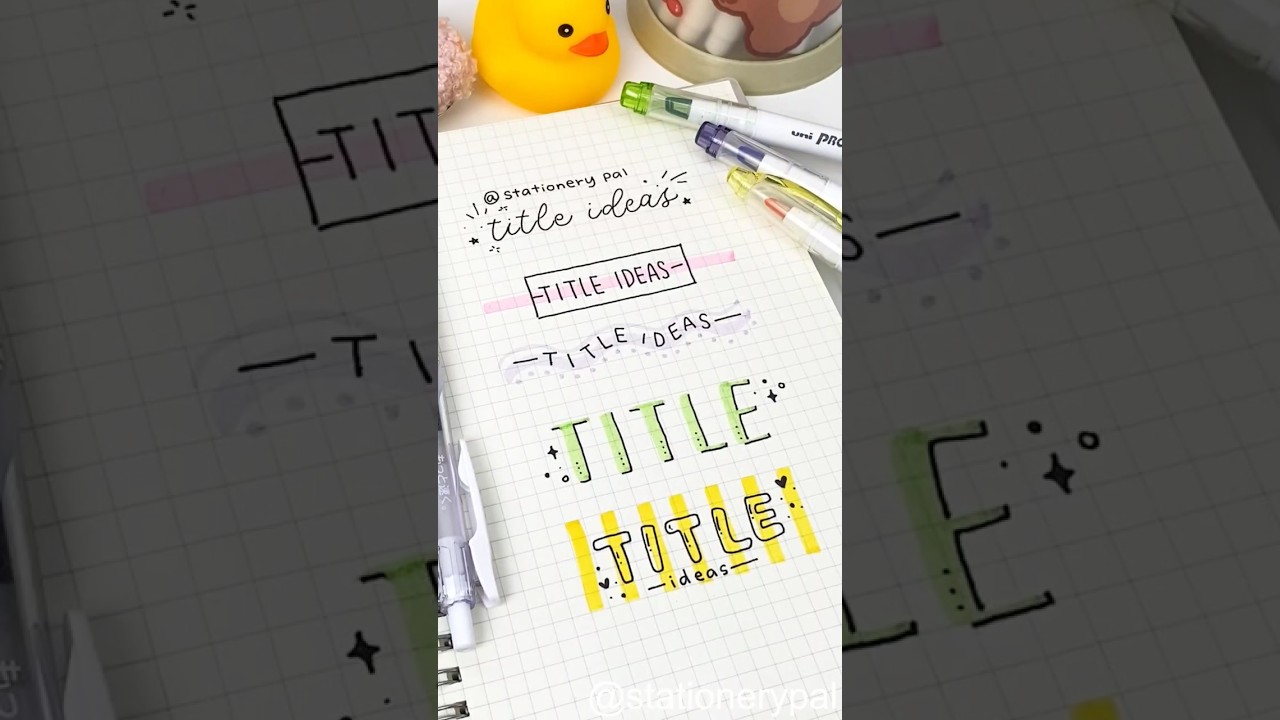 @stationery pal
title ideas
-TITLE IDEAS-
—TITLE IDEAS—
TITLE
TITLE
—ideas—
uni PRO
@stationerypal